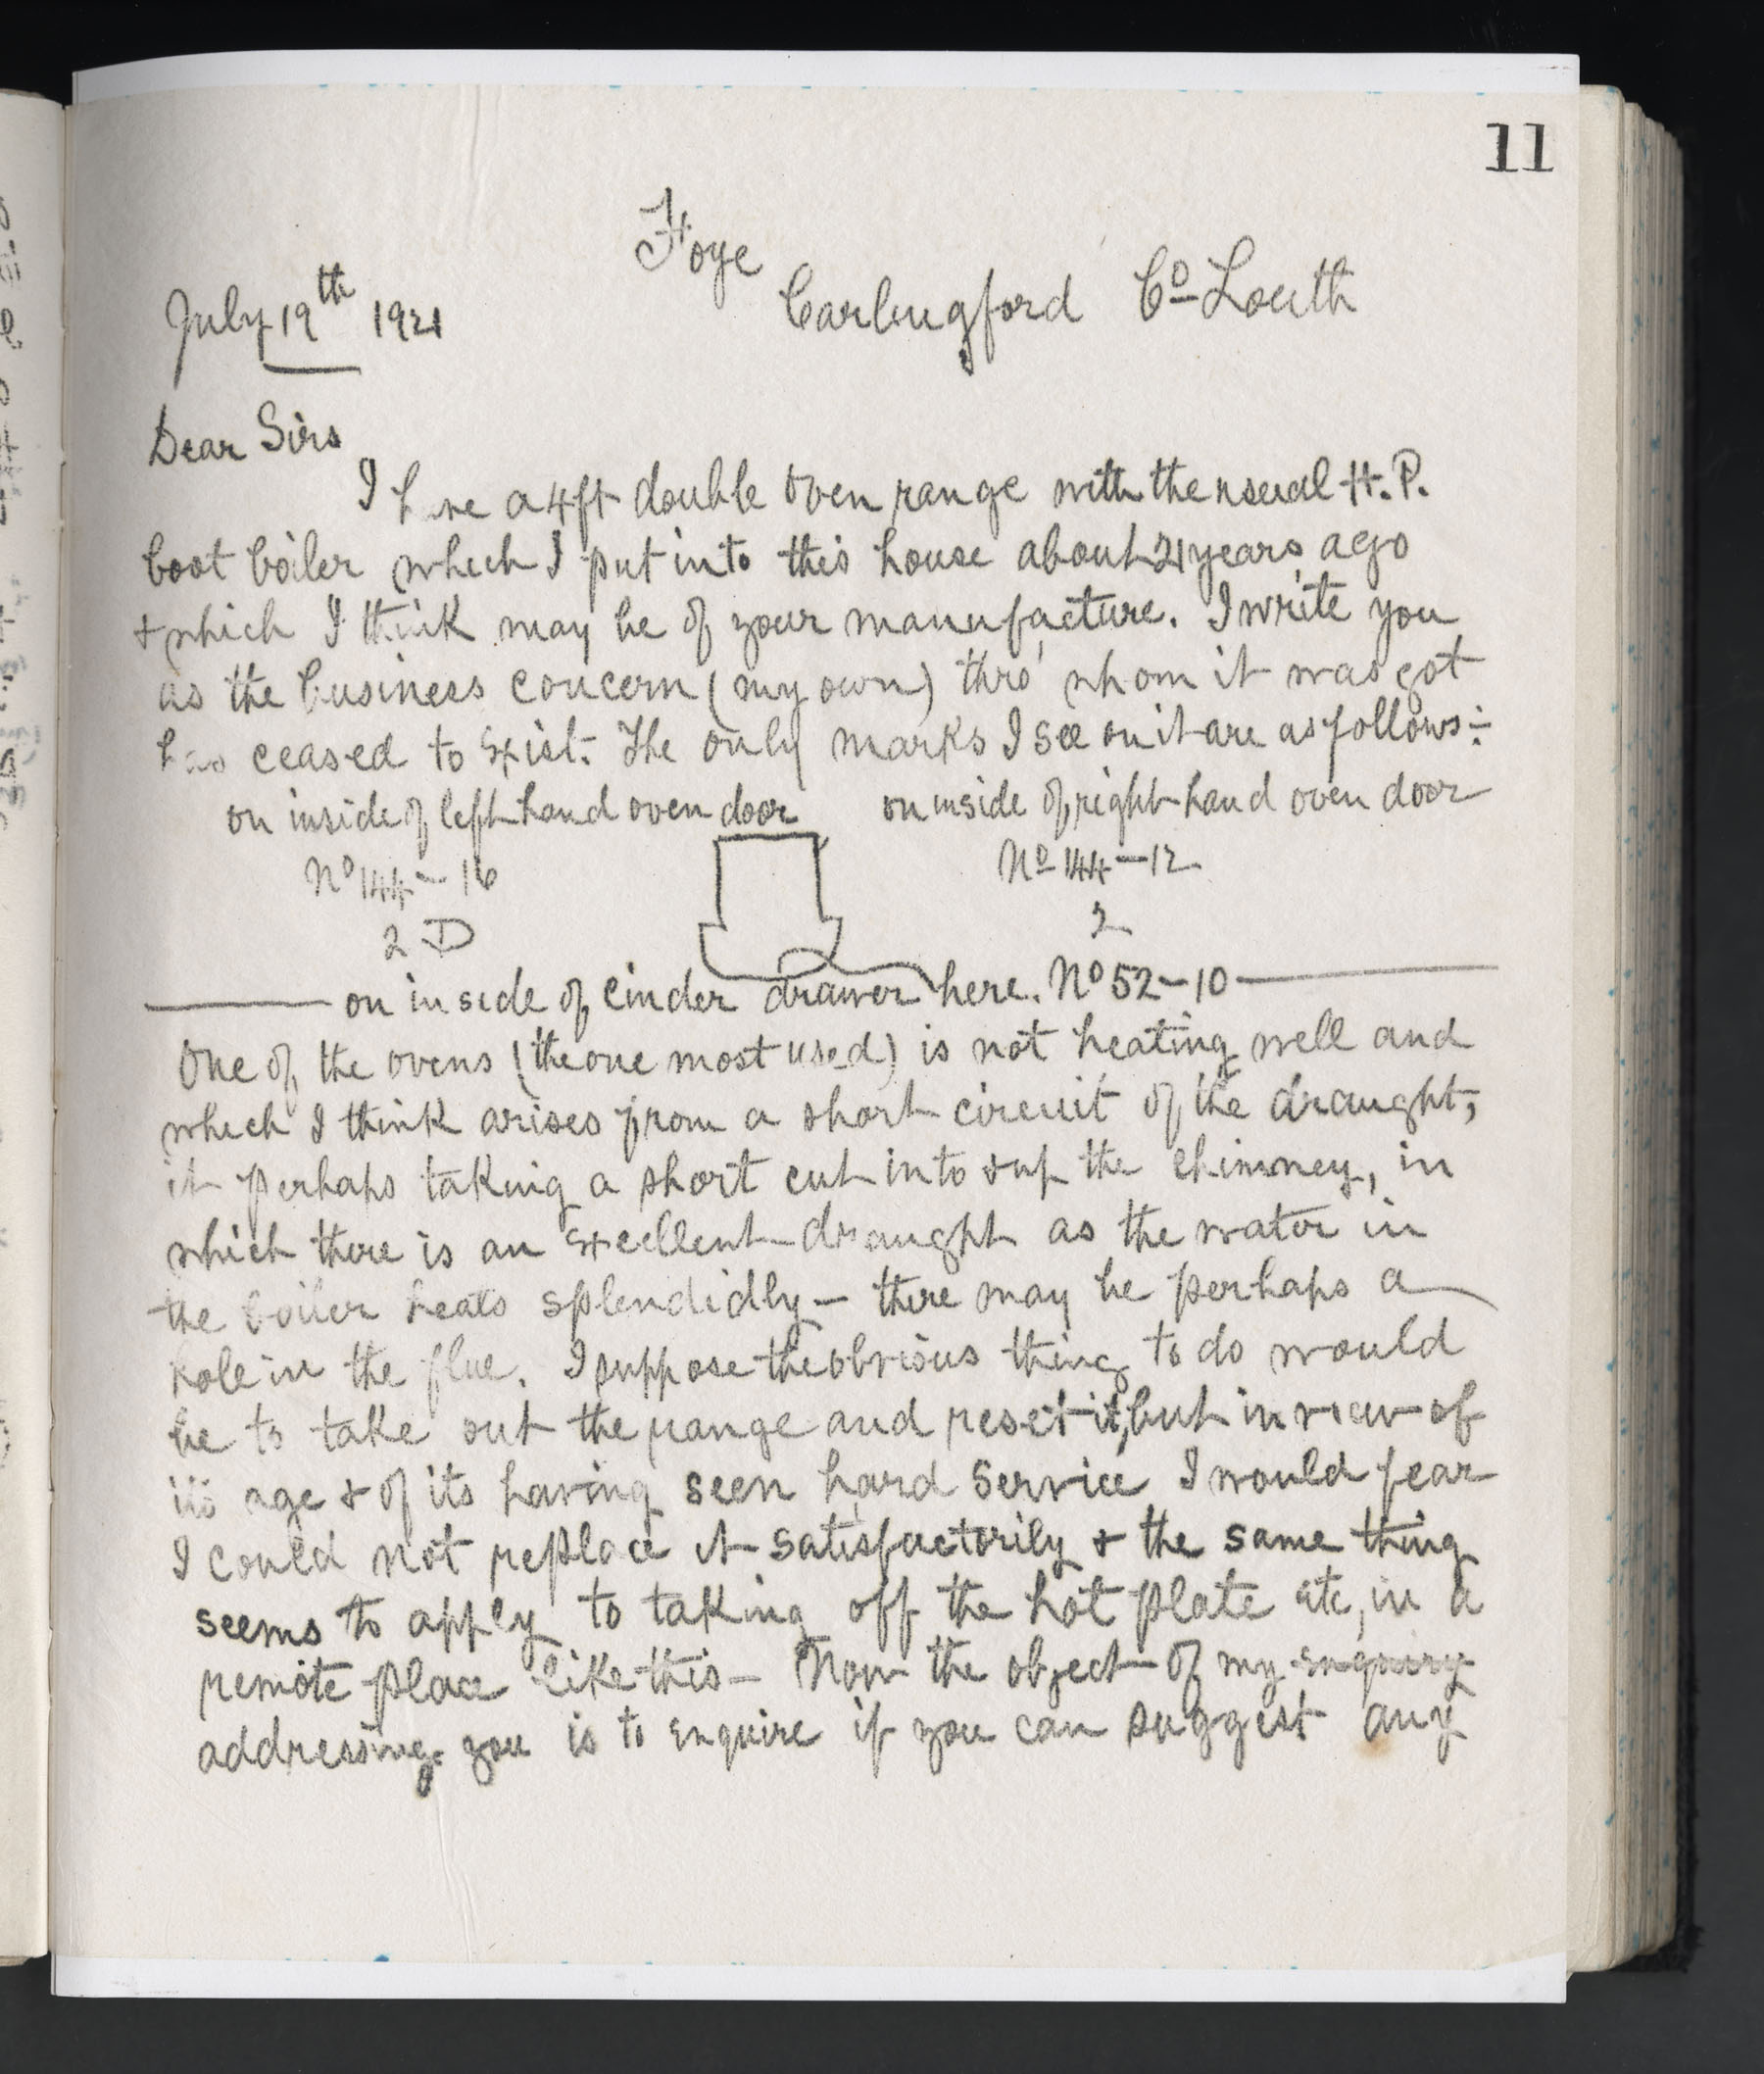 11
Foye
Carlingford Co Louth
July 19th 1921
Dear Sirs
I have a 4ft double oven range with the usual H.P.
boot boiler which I put into this house about 21 years ago
& which I think may be of your manufacture. I write you
as the business concern (my own) thro' whom it was got
has ceased to exist. The only marks I see on it are as follows:-
on inside of left hand oven door on inside of right hand oven door
No 144-16 No 144-12
2 D 2
on inside of cinder drawer here. No 52-10
One of the ovens (the one most used) is not heating well and
which I think arises from a short circuit of the draught,
it perhaps taking a short cut into & up the chimney, in
which there is an excellent draught as the water in
the boiler heats splendidly - there may be perhaps a
hole in the flue. I suppose the obvious thing to do would
be to take out the range and reset it, but in view of
its age & of its having seen hard service I would fear
I could not replace it satisfactorily & the same thing
seems to apply to taking off the hot plate etc, in a
remote place like this - Now the object of my enquiry
addressing you is to enquire if you can suggest any